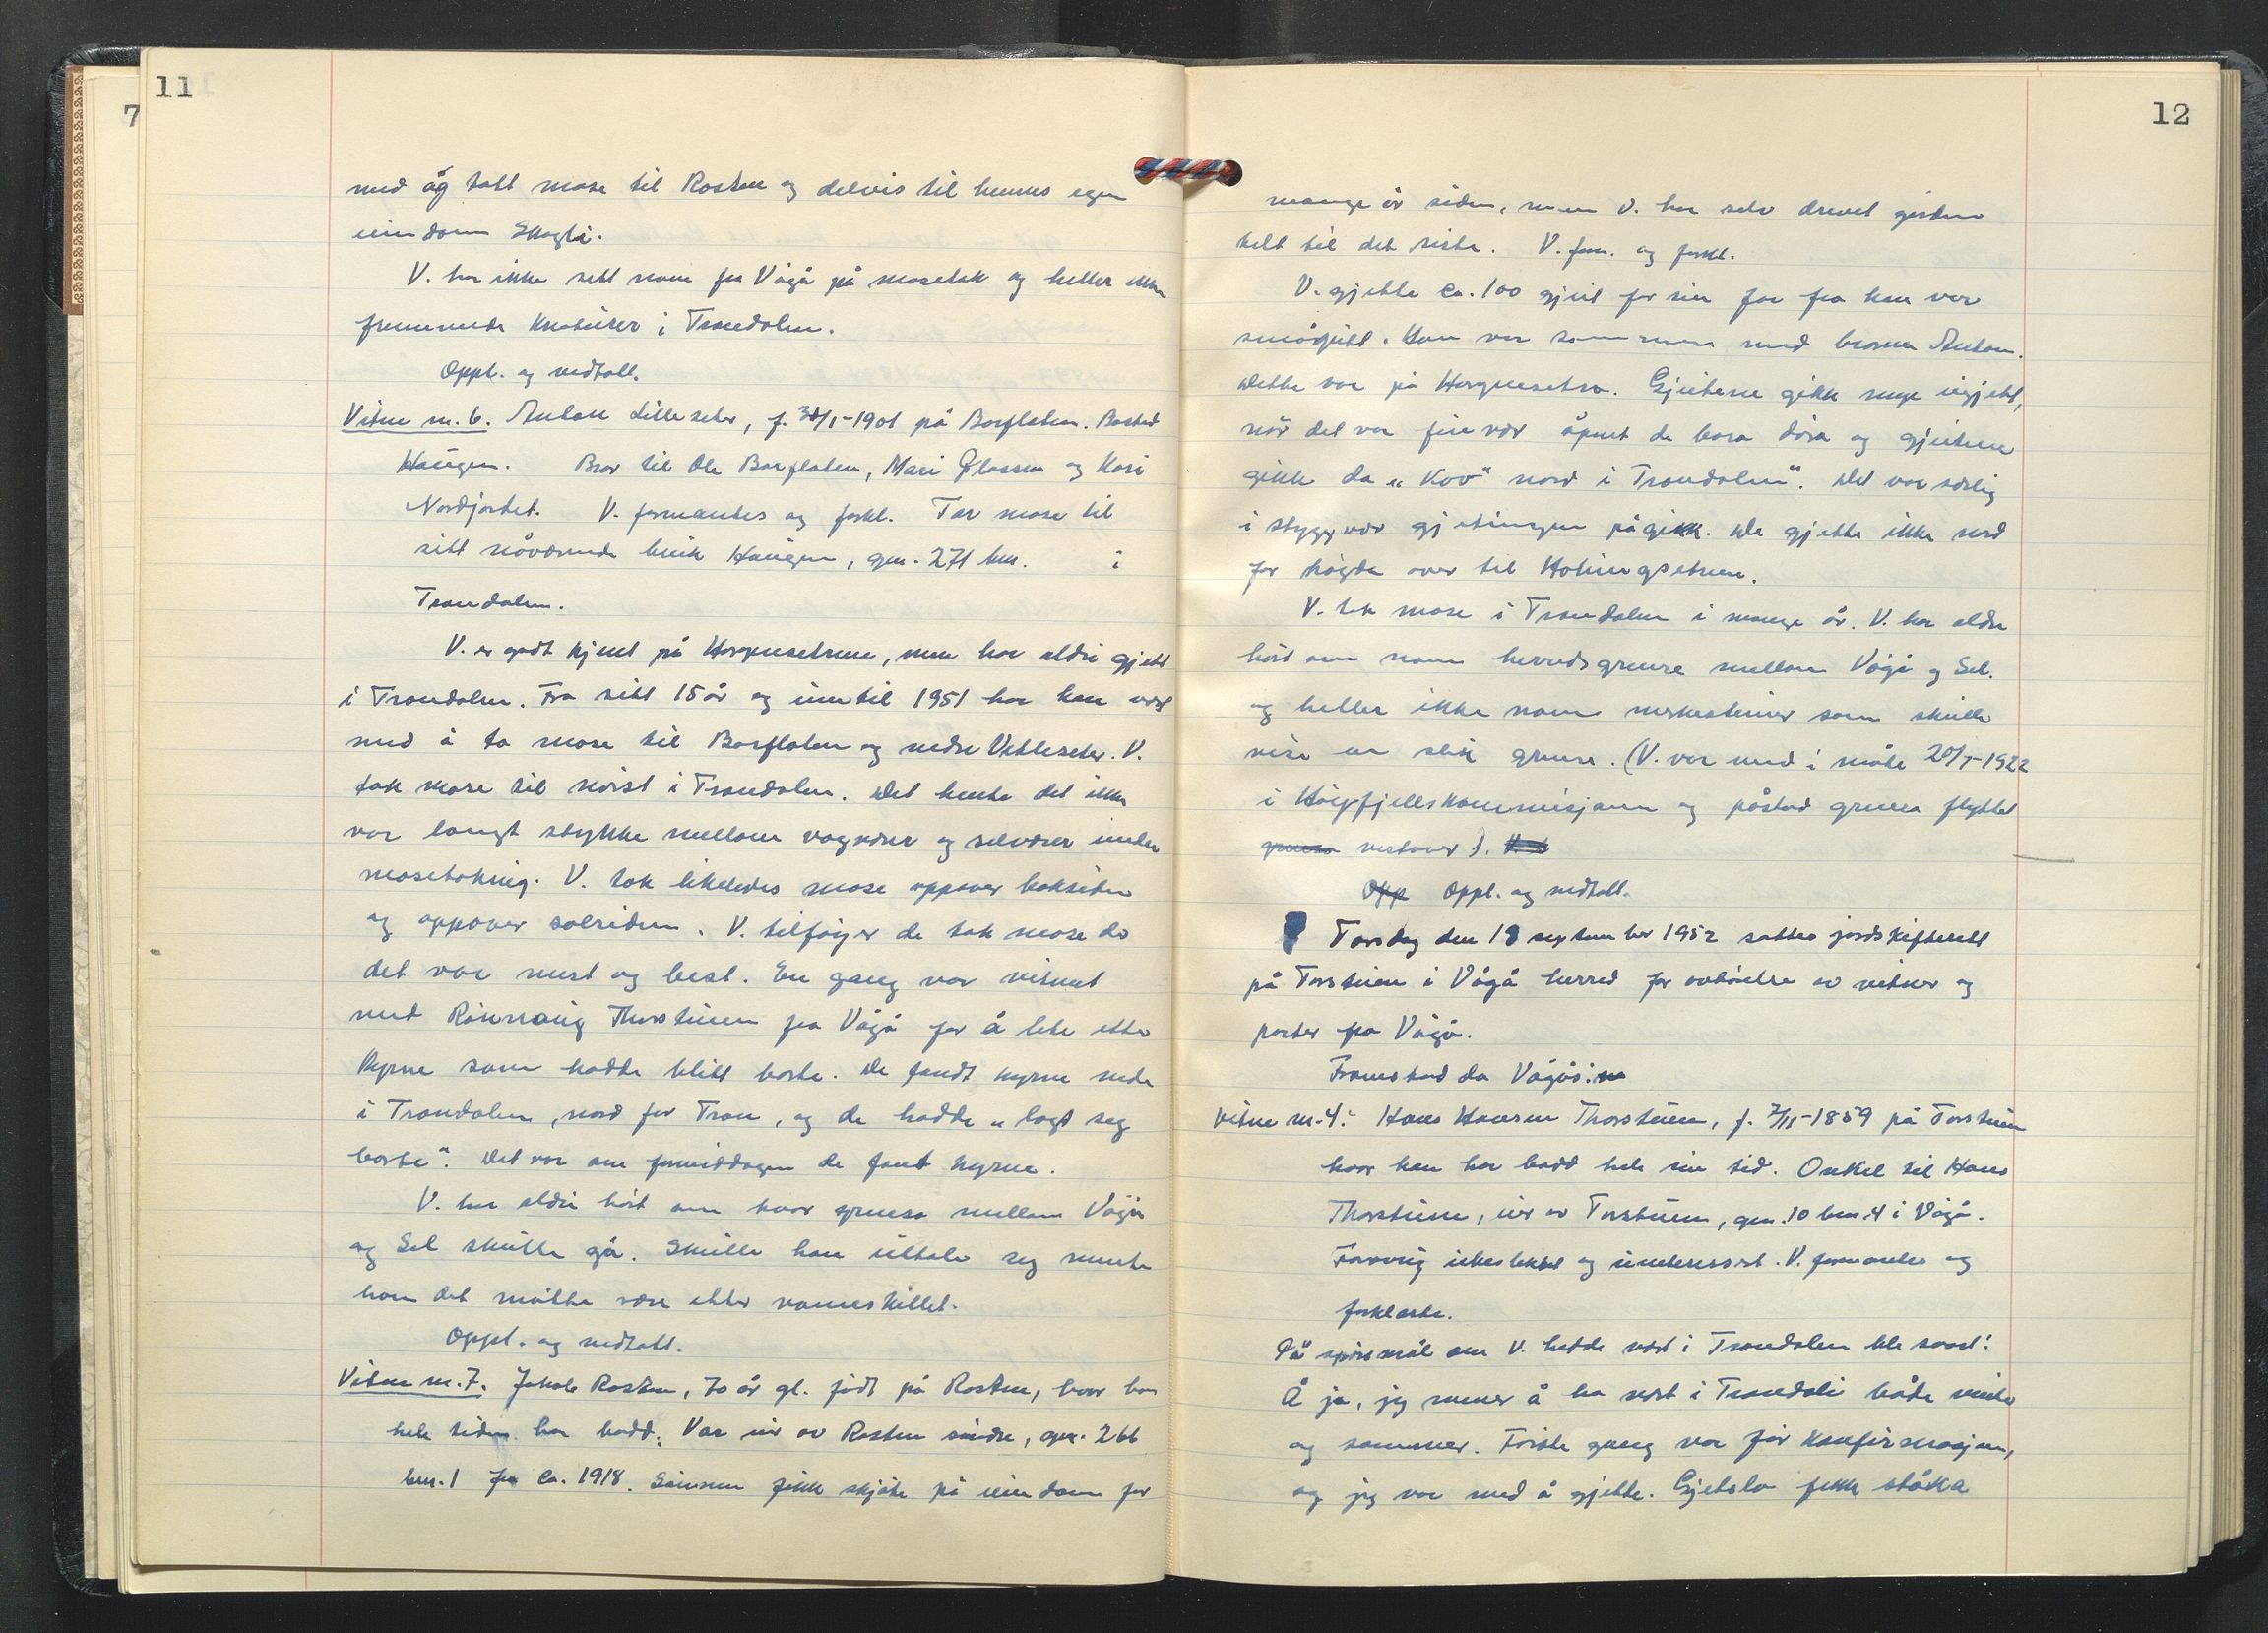 11
7
med åg tatt mose til Rosten og delvis til hennes egen
eiendom Skogli.
V. har ikke sett noen fra Vågå på mosetak og heller ikke
fremmede krøtturer i Trondalen.
Oppl. og vedtatt.
Vitne nr. 6. Anton Lilleseter, f. 30/1-1901 på Barflaten. Bosted
Haugen. Bror til Ole Barflaten, Mari Glassen og Kari
Nordjordet. V. formantes og forkl. Tar mose til
sitt nåværende bruk Haugen, gnr. 271 bnr. i
Trondalen.
V. er godt kjent på Horgensetrene, men har aldri gjett
i Trondalen. Fra sitt 15 år og inntil 1951 har han vært
med å ta mose til Barflaten og nedre Vetleseter. V.
tok mose til nørst i Trondalen. Det hente det ikke
var langt stykke mellom vagværer og selværer under
mosetaking. V. tok likeledes mose oppover baksiden
og oppover solsiden. V. tilføyer de tok mose der
det var mest og best. En gang var vitnet
med Rønnaug Thorsteinen fra Vågå for å lete etter
kyrne som hadde blitt borte. De fandt kyrne nede
i Trondalen, nord for Tron, og de hadde „lagt seg
borte". Det var om formiddagen de fant kyrne.
V. har aldri hørt om hvor grensa mellom Vågå
og Sel skulle gå. Skulle han uttale seg mente
han det måtte være etter vannskillet.
Oppl. og vedtatt.
Vitne nr. 7. Jakob Rosten, 70 år gl. født på Rosten, hvor han
hele tiden har bodd. Var eier av Rosten søndre, gnr. 266
bnr. 1 fra ca. 1918. Sønnen fikk skjøte på eiendom for
12
mange år siden, men V. har selv drevet garden
helt til det siste. V. form. og forkl.
V. gjette ca. 100 gjeit for sin far fra han var
smågutt. Han var sammen med broren Anton.
Dette var på Horgensetra. Gjeitene gikk mye ugjett,
når det var fint vær åpnet de bara døra og gjeitene
gikk da „kov" nord i Trondalen". Det var særlig
i styggvær gjetingen pågikk. De gjette ikke nord
for høgda over til Holungsetrene.
V. tok mose i Trondalen i mange år. V. har aldri
hørt om noen herredsgrense mellom Vågå og Sel.
og heller ikke noen merkesteiner som skulle
vise en slik grense. (V. var med i møte 20/7-1922
i Høyfjellskommisjonen og påstod grensa flyttet
grensa vestover). V. t
Opp Oppl. og vedtatt.
Torsdag den 18 september 1952 sattes jordskifterett
på Torstein i Vågå herred for avhørelse av vitner og
parter fra Vågå.
Framstod da Vågås:
Vitne nr. 4: Hans Hansen Thorsteinen, f. 7/11-1859 på Torsteinen
hvor han har bodd hele sin tid. Onkel til Hans
Thorsteinen, eier av Torsteinen, gnr. 10 bnr. 4 i Vågå.
Forøvrig ubeslektet og uinteressert. V. formantes og
forklarte.
På spørsmål om V. hadde vært i Trondalen ble svart:
Å ja, jeg mener å ha vært i Trondali både vinter
og sommer. Første gang var før konfirmasjonen,
og jeg var med å gjette. Gjetsla fekk ståka